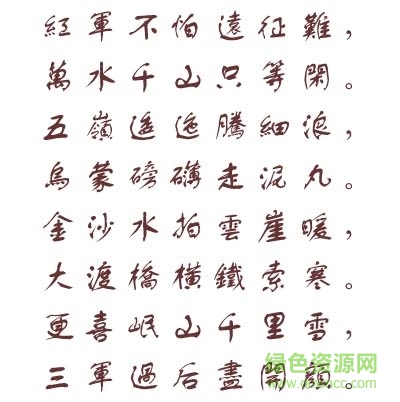 紅軍不怕遠征難，
萬水千山只等閑。
五嶺逶迤騰細浪，
烏蒙磅礴走泥丸。
金沙水拍雲崖暖，
大渡橋橫鐵索寒。
更喜岷山千里雪，
三軍過后盡開顏。
绿色资源网
www.downcc.com